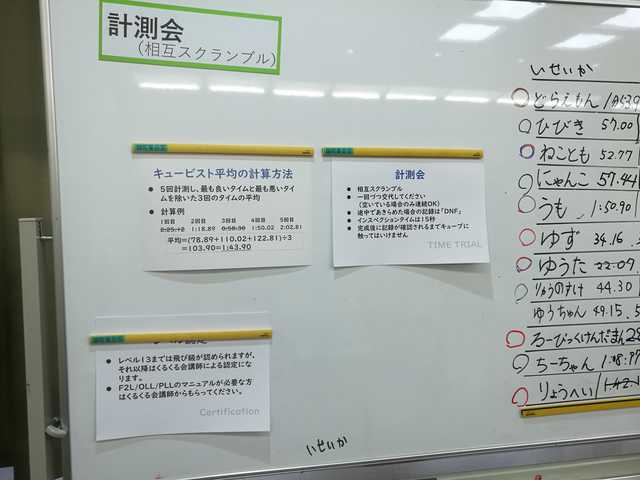 計測会
(相互スクランブル)
キュービスト平均の計算方法
● 5回計測し、最も良いタイムと最も悪いタイムを除いた3回のタイムの平均
● 計算例
1回目 2回目 3回目 4回目 5回目
1:18.89 0:50.30 1:50.02 2:02.81
平均=(78.89+110.02+122.81)÷3
=103.90=1:43.90
計測会
● 相互スクランブル
● 一回づつ交代してください
(空いている場合のみ連続OK)
● 途中であきらめた場合の記録は「DNF」
● インスペクションタイムは15秒
● 完成後に記録が確認されるまでキューブに
触ってはいけません
TIME TRIAL
● レベル13までは飛び級が認められますが、
それ以降はくるくる会講師による認定にな
ります。
● F2L/OLL/PLLのマニュアルが必要な方
はくるくる会講師からもらってください。
Certification
いせいか
いせいか
どらえもん
ひびき 57.00
ねことも 52.77
にゃんこ 57.44
うも 1:50.90
ゆず 34.16
ゆうた 22.09
りゅうのすけ 44.30
ゆうちゃん 49.15
ろーびっくけんだまん
ちーちゃん
りょうへい